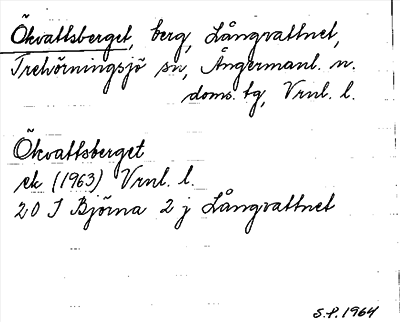 Ökvattsberget, berg, Långvattnet,
Trehörningsjö sn, Ångermanl. n.
doms. tg, Vrnl. l.
Ökvattsberget
ek (1963) Vrnl. l.
20 I Björna 2 j Långvattnet
S.P. 1964